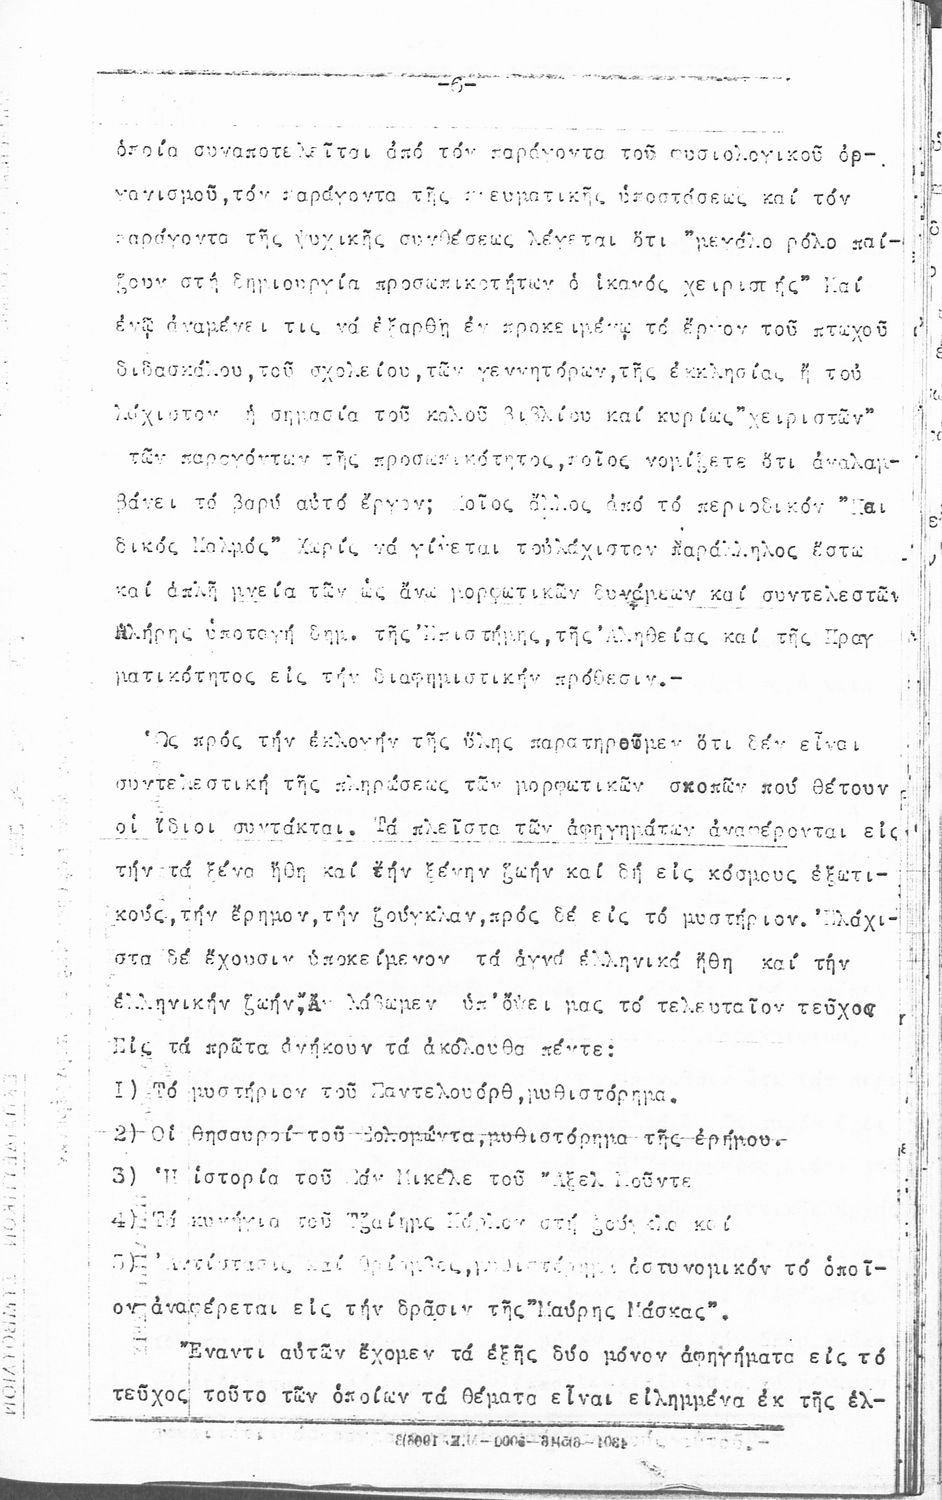 -6-
ὁποία συναποτελεῖται ἀπό τόν παράγοντα τοῦ φυσιολογικοῦ ὀρ-
γανισμοῦ,τόν παράγοντα τῆς πνευματικῆς ὑποστάσεως καί τόν
παράγοντα τῆς ψυχικῆς συνθέσεως λέγεται ὅτι "μεγάλο ρόλο παί-
ζουν στή δημιουργία προσωπικοτήτων ὁ ἱκανός χειριστής" Καί
ἐνῷ ἀναμένει τις νά ἐξαρθῇ ἐν προκειμένῳ τό ἔργον τοῦ πτωχοῦ
διδασκάλου,τοῦ σχολείου,τῶν γεννητόρων,τῆς ἐκκλησίας ἤ τοὐ
λάχιστον ἡ σημασία τοῦ καλοῦ βιβλίου καί κυρίως"χειριστῶν"
τῶν παραγόντων τῆς προσωπικότητος,ποῖος νομίζετε ὅτι ἀναλαμ-
βάνει τό βαρύ αὐτό ἔργον; Ποῖος ἄλλος ἀπό τό περιοδικόν "Παι
δικός Παλμός" Χωρίς νά γίνεται τοὐλάχιστον παράλληλος ἔστω
καί ἁπλῆ μνεία τῶν ὡς ἄνω μορφωτικῶν δυνάμεων καί συντελεστῶν
Πλήρης ὑποταγή δημ. τῆς Ἐπιστήμης,τῆς Ἀληθείας καί τῆς Πραγ
ματικότητος εἰς τήν διαφημιστικήν πρόθεσιν.-
Ὡς πρός τήν ἐκλογήν τῆς ὕλης παρατηροῦμεν ὅτι δέν εἶναι
συντελεστική τῆς πληρώσεως τῶν μορφωτικῶν σκοπῶν πού θέτουν
οἱ ἴδιοι συντάκται. Τά πλεῖστα τῶν ἀφηγημάτων ἀναφέρονται εἰς
τήν τά ξένα ἤθη καί τήν ξένην ζωήν καί δή εἰς κόσμους ἐξωτι-
κούς,τήν ἔρημον,τήν ζούγκλαν,πρός δέ εἰς τό μυστήριον. Ἐλάχι-
στα δέ ἔχουσιν ὑποκείμενον τά ἁγνά ἑλληνικά ἤθη καί τήν
ἑλληνικήν ζωήν, Ἄν λάβωμεν ὑπ' ὄψει μας τό τελευταῖον τεῦχος
Εἰς τά πρῶτα ἀνήκουν τά ἀκόλουθα πέντε:
1) Τό μυστήριον τοῦ Σαντελουόρθ,μυθιστόρημα.
2) Οἱ θησαυροί τοῦ Σολομῶντα,μυθιστόρημα τῆς ἐρήμου.
3) Ἡ ἱστορία τοῦ Σάν Μικέλε τοῦ Ἄξελ Μοῦντε
4) Τά κυνήγια τοῦ Τζαίημς Κάρλον στή ζούγκλα καί
5) Ἀντίστασις καί θρίαμβος,μυθιστόρημα ἀστυνομικόν τό ὁποῖ-
ον ἀναφέρεται εἰς τήν δρᾶσιν τῆς"Μαύρης Μάσκας".
Ἔναντι αὐτῶν ἔχομεν τά ἑξῆς δύο μόνον ἀφηγήματα εἰς τό
τεῦχος τοῦτο τῶν ὁποίων τά θέματα εἶναι εἰλημμένα ἐκ τῆς ἑλ-